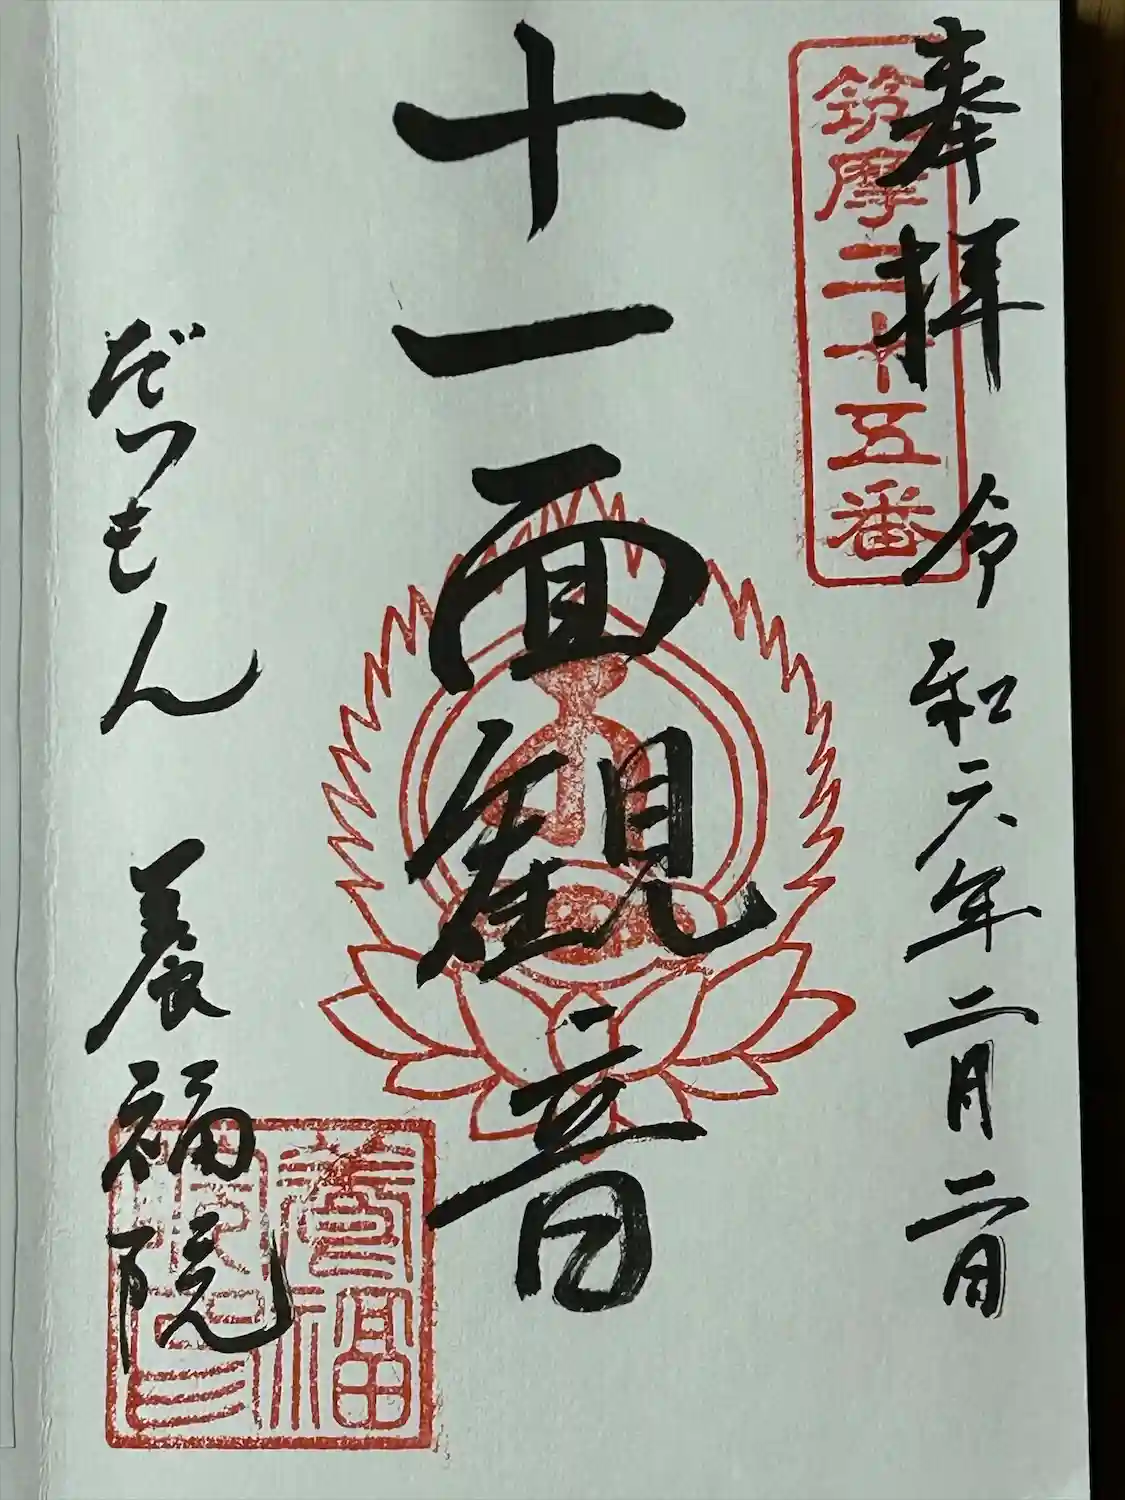 奉拝
令和六年二月二日
筑摩三十五番
十一面観音
だつもん 養福院
養福院印